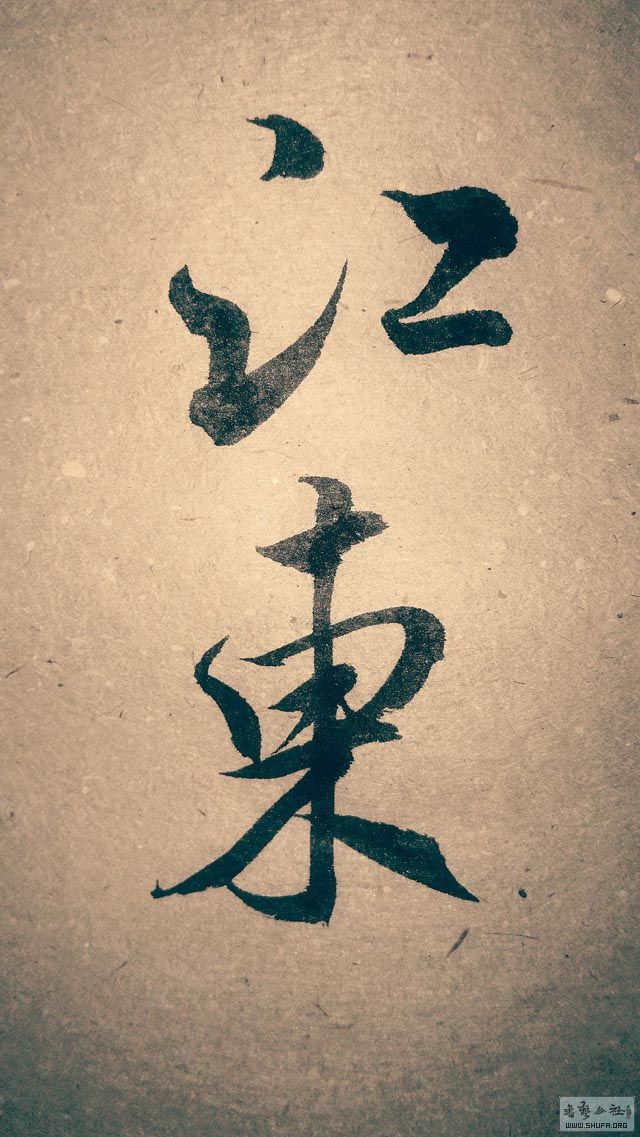 江東
書藝公社
WWW.SHUFA.ORG